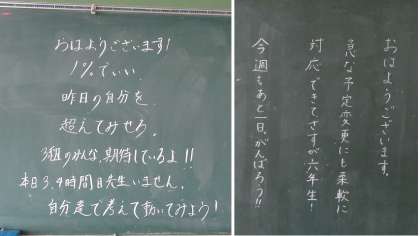 おはようございます!
1%でいい.
昨日の自分を
超えてみせろ.
3組のみんな、期待しているよ!!
本日3,4時間目先生いません.
自分達で考えて動いてみよう!
おはようございます。
急な予定変更にも柔軟に
対応できてさすが六年生!
今週もあと一日、がんばろう!!